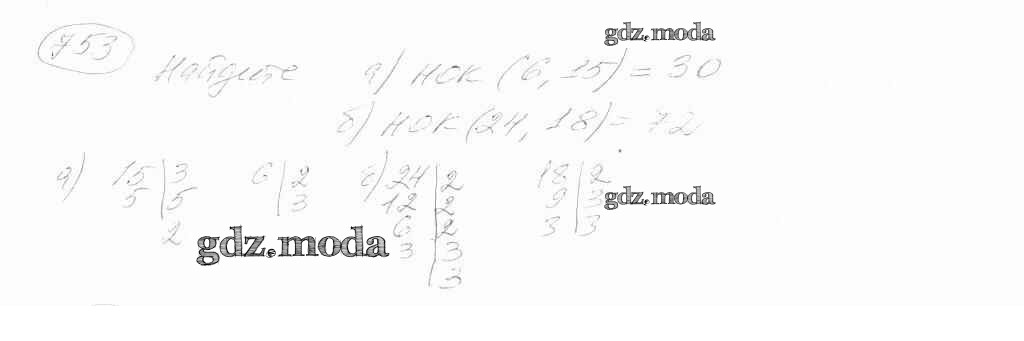 753
gdz.moda
Найдите а) НОК (6, 15) = 30
б) НОК (24, 18) = 72
а) 15 | 3 6 | 2 б) 24 | 2 18 | 2
5 | 5 3 12 | 2 9 | 3 gdz.moda
2 6 | 2 3 | 3
gdz.moda 3 | 3
3